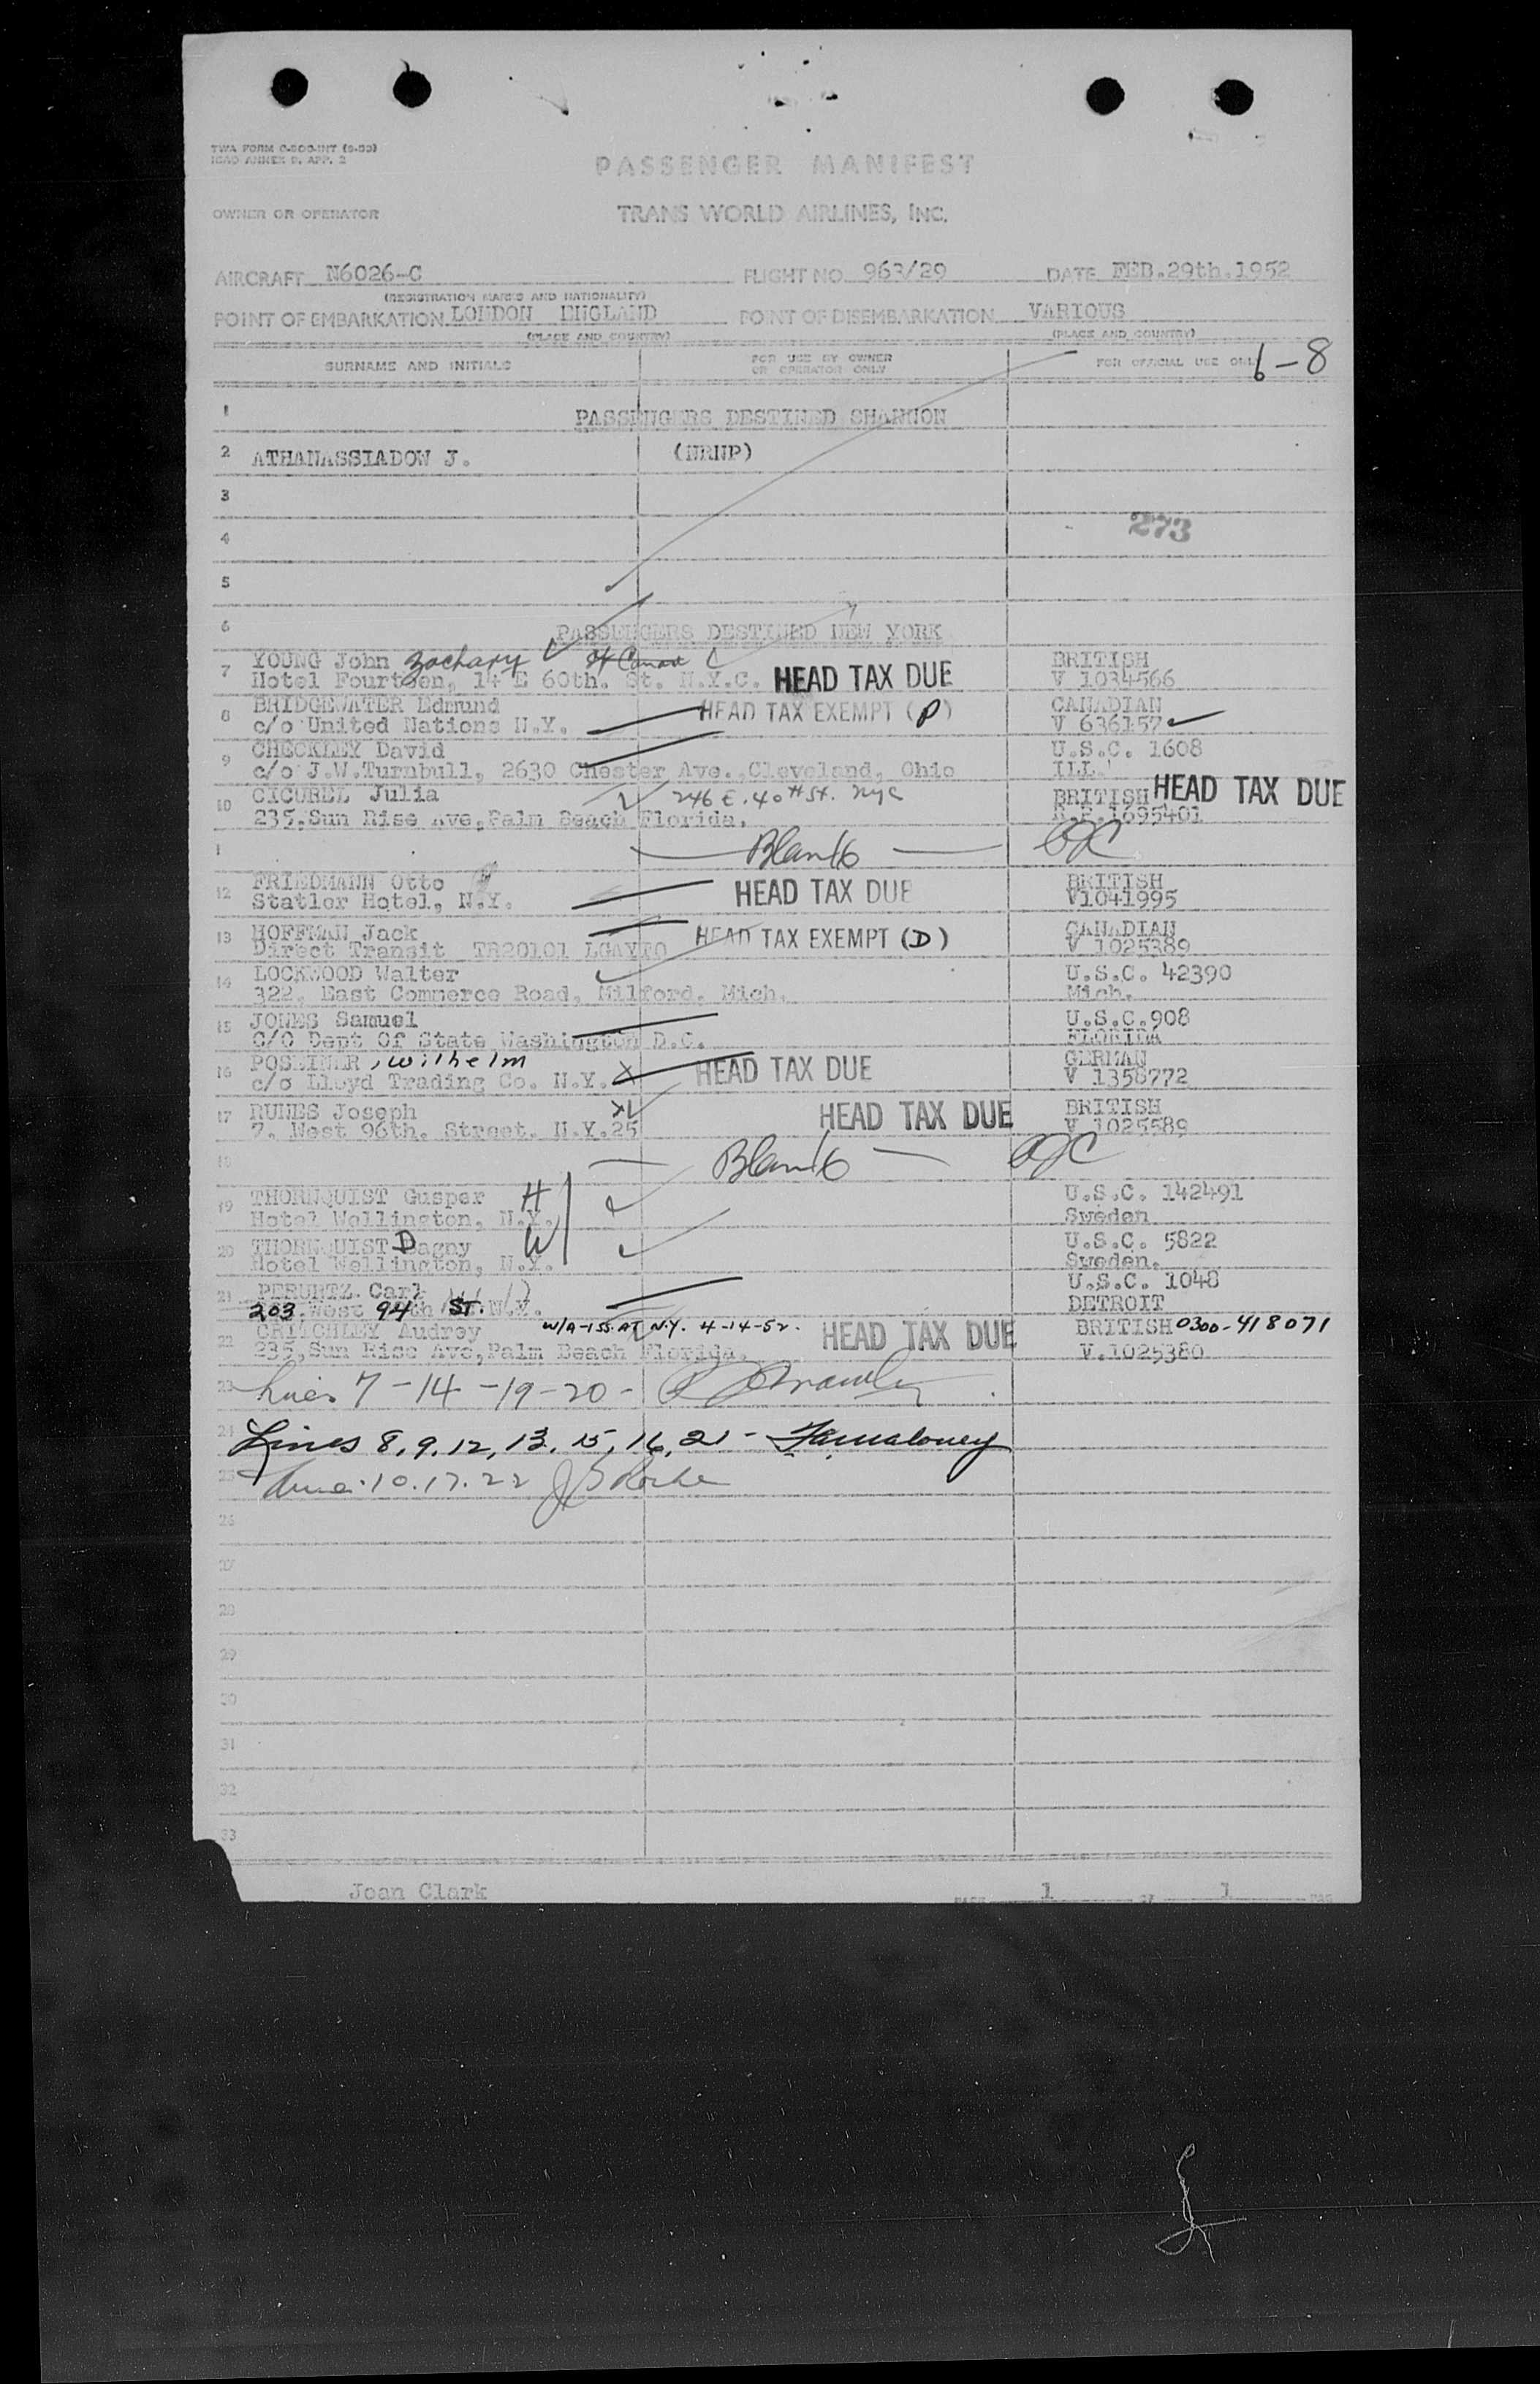 TWA FORM
ICAO ANNEX 9, APP. 2
PASSENGER MANIFEST
OWNER OR OPERATOR
TRANS WORLD AIRLINES, INC.
AIRCRAFT N6026-C FLIGHT NO. 963/29 DATE FEB.29th.1952
(REGISTRATION MARKS AND NATIONALITY)
POINT OF EMBARKATION LONDON ENGLAND POINT OF DISEMBARKATION VARIOUS
(PLACE AND COUNTRY) (PLACE AND COUNTRY)
SURNAME AND INITIALS FOR USE BY OWNER OR OPERATOR ONLY FOR OFFICIAL USE ONLY 6-8
1 PASSENGERS DESTINED SHANNON
2 ATHANASSIADOW J. (NRNP)
3
273
4
5
6 PASSENGERS DESTINED NEW YORK
7 YOUNG John Zachary BRITISH
Hotel Fourteen, 14 E 60th. St. N.Y.C. HEAD TAX DUE V 1034566
8 BRIDGEWATER Edmund HEAD TAX EXEMPT (P) CANADIAN
c/o United Nations N.Y. V 636157
9 CHECKLEY David U.S.C. 1608
c/o J.W.Turnbull, 2630 Chester Ave.,Cleveland, Ohio ILL.
10 CICUREL Julia 246 E. 40th St. NYC BRITISH HEAD TAX DUE
235,Sun Rise Ave,Palm Beach Florida. R.P.1695401
Blank
12 FRIEDMANN Otto HEAD TAX DUE BRITISH
Statler Hotel, N.Y. V1041995
13 HOFFMAN Jack HEAD TAX EXEMPT (D) CANADIAN
Direct Transit TR20101 LGAYTO V 1025389
14 LOCKWOOD Walter U.S.C. 42390
322, East Commerce Road, Milford, Mich. Mich.
15 JONES Samuel U.S.C.908
C/O Dept Of State Washington D.C. FLORIDA
16 , Wilhelm HEAD TAX DUE GERMAN
c/o Lloyd Trading Co. N.Y. V 1358772
17 Joseph HEAD TAX DUE BRITISH
7, West 96th. Street. N.Y.25 V 1025589
18 Blank
19 THORNQUIST Gusper H U.S.C. 142491
Hotel Wellington, N.Y. Sweden
20 THORNQUIST Dagny W U.S.C. 5822
Hotel Wellington, N.Y. Sweden.
21 PERUHTZ Carl U.S.C. 1048
203 West 94th St. N.Y. DETROIT
22 CRITCHLEY Audrey W/A-1 55. AT N.Y. 4-14-52. HEAD TAX DUE BRITISH 0300-418071
235,Sun Rise Ave,Palm Beach Florida. V.1025380
23 Lines 7-14-19-20-
24 Lines 8,9,12,13,15,16,21-
25 10.17.22
26
27
28
29
30
31
32
33
Joan Clark PAGE 1 OF 1